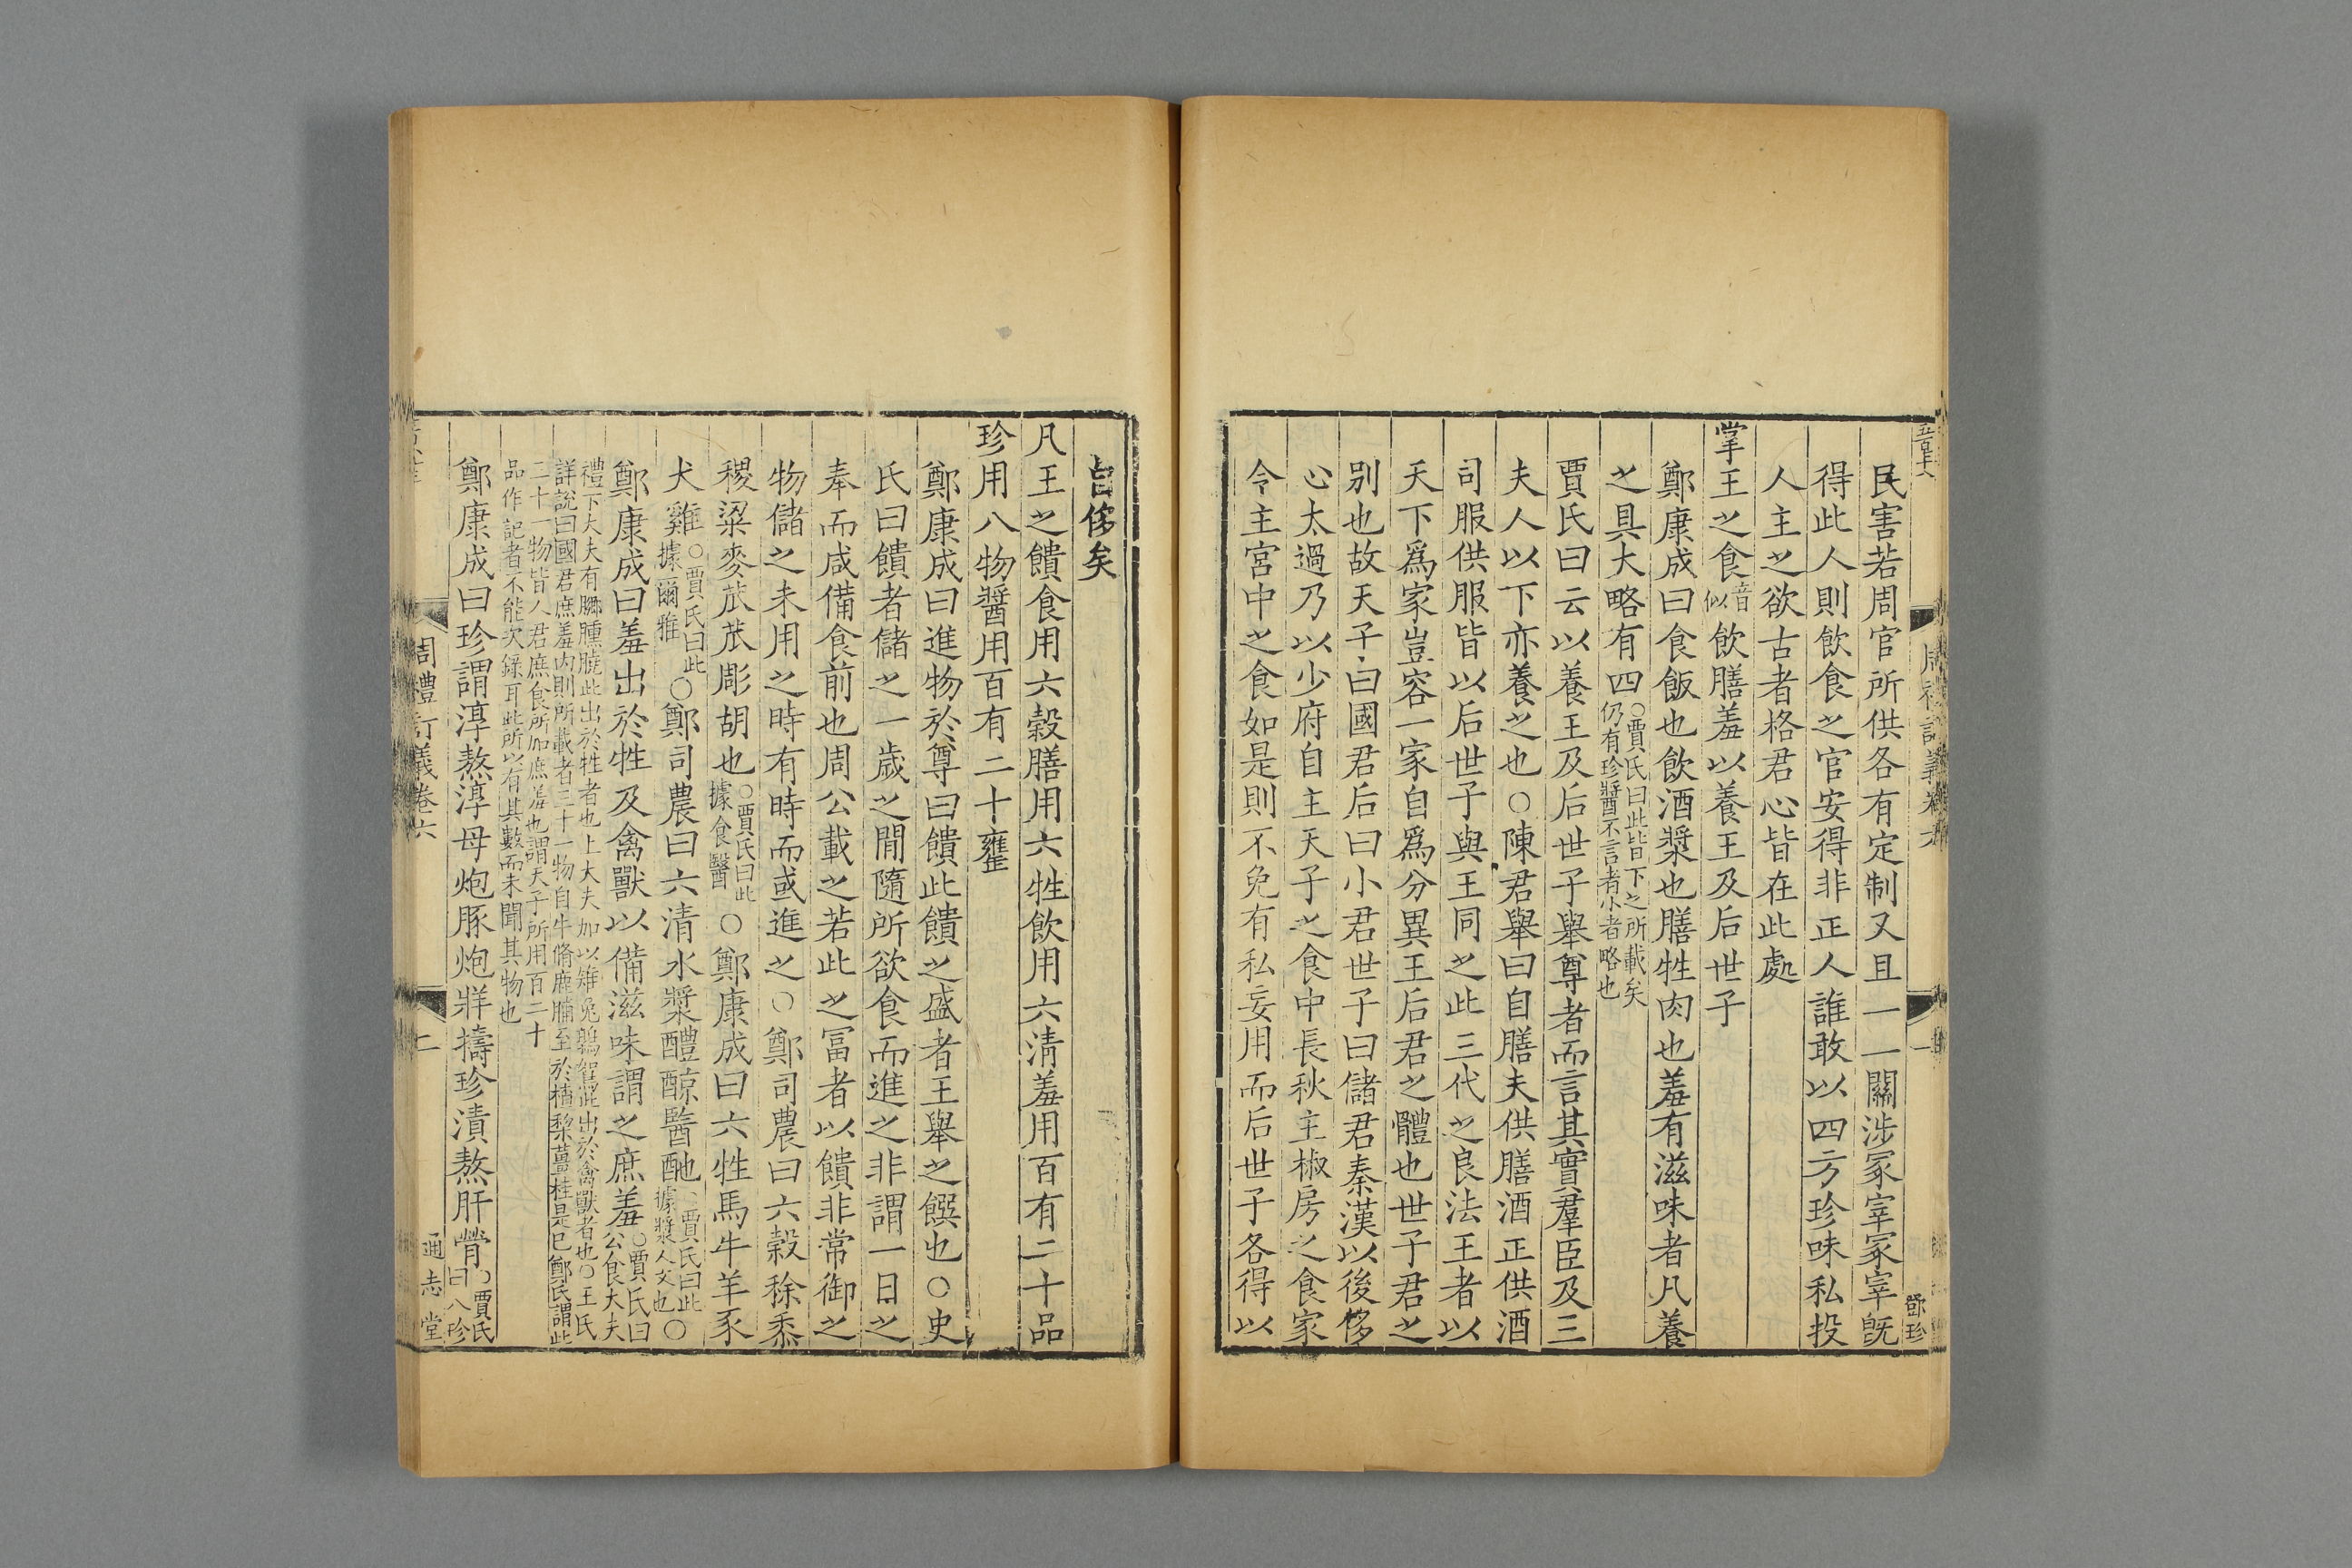 民害若周官所供各有定制又且一一關涉冢宰冢宰旣
得此人則飲食之官安得非正人誰敢以四方珍味私投
人主之欲古者格君心皆在此處
掌王之食音似飲膳羞以養王及后世子
鄭康成曰食飯也飲酒漿也膳牲肉也羞有滋味者凡養
之具大略有四○賈氏曰此皆下之所載矣仍有珍醬不言者小者略也
賈氏曰云以養王及后世子舉尊者而言其實羣臣及三
夫人以下亦養之也○陳君舉曰自膳夫供膳酒正供酒
司服供服皆以后世子與王同之此三代之良法王者以
天下爲家豈容一家自爲分異王后君之體也世子君之
別也故天子曰國君后曰小君世子曰儲君秦漢以後侈
心太過乃以少府自主天子之食中長秋主椒房之食家
令主宮中之食如是則不免有私妄用而后世子各得以
自侈矣
凡王之饋食用六穀膳用六牲飲用六清羞用百有二十品
珍用八物醬用百有二十罋
鄭康成曰進物於尊曰饋此饋之盛者王舉之饌也○史
氏曰饋者儲之一歲之間隨所欲食而進之非謂一日之
奉而咸備食前也周公載之若此之冨者以饋非常御之
物儲之未用之時有時而或進之○鄭司農曰六穀稌黍
稷粱麥苽苽彫胡也○賈氏曰此據食醫○鄭康成曰六牲馬牛羊豕
犬雞○賈氏曰此據爾雅○鄭司農曰六清水漿醴䣼醫酏○賈氏曰此據漿人文也○
鄭康成曰羞出於牲及禽獸以備滋味謂之庶羞○賈氏曰公食大夫
禮下大夫有膷臐膮此出於牲者也上大夫加以雉兔鶉鴽此出於禽獸者也○王氏
詳說曰國君庶羞內則所載者三十一物自牛脩鹿脯至於樝棃薑桂是已鄭氏謂此
三十一物皆人君庶食所加庶羞也謂天子所用百二十
品作記者不能次錄耳此所以有其數而未聞其物也
鄭康成曰珍謂淳熬淳母炮豚炮牂擣珍漬熬肝膋○賈氏曰八珍
周禮訂義卷六
二
通志堂